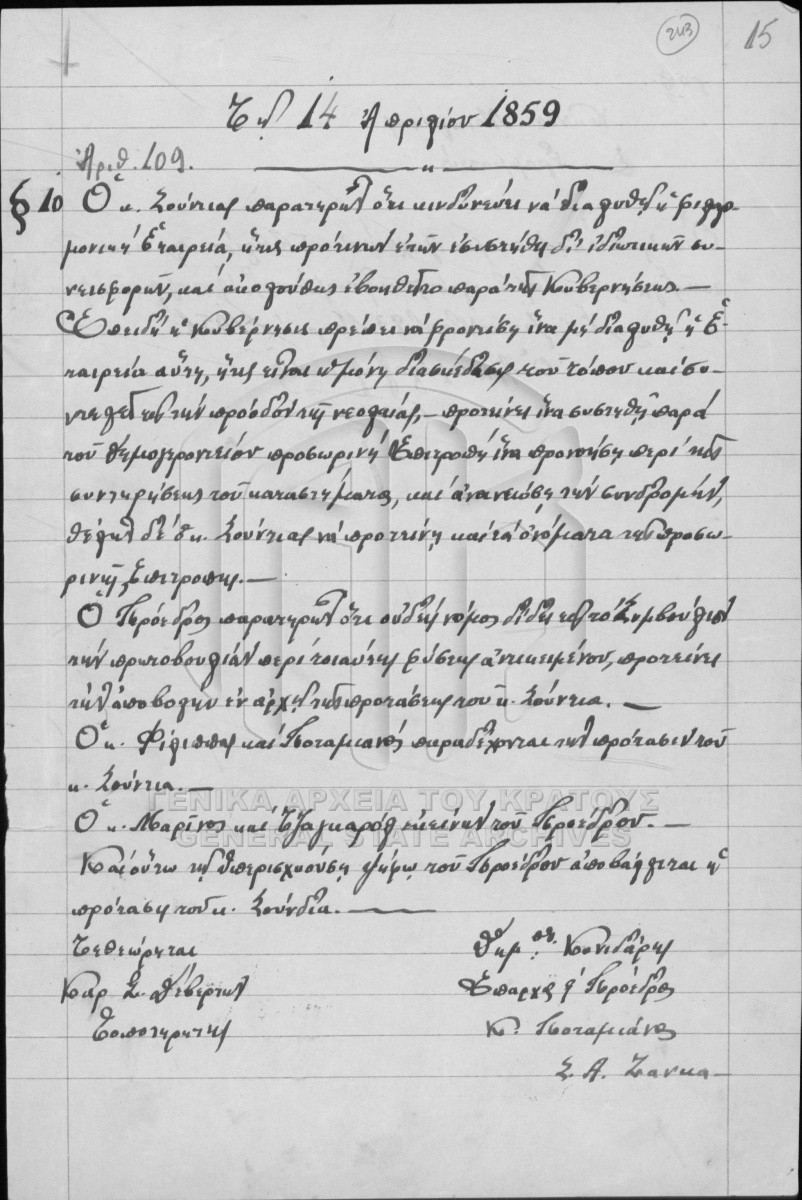 243
15
Τῇ 14 Ἀπριλίου 1859
Ἀριθ. 109.
§ 10 Ὁ κ. Σούντιας παρατηρῶν ὅτι κινδυνεύει νὰ διαλυθῇ ἡ φιλαρ-
μονικὴ Ἑταιρεία, ἥτις πρό τινων ἐτῶν ἐσυστήθη δι' ἰδιωτικῶν συ-
νεισφορῶν, καὶ ἀκολούθως ἐβοηθεῖτο παρὰ τῆς Κυβερνήσεως. —
Ἐπειδὴ ἡ Κυβέρνησις πρέπει νὰ φροντίσῃ ἵνα μὴ διαλυθῇ ἡ Ἑ-
ταιρεία αὕτη, ἥτις εἶναι ἡ μόνη διασκέδασις τοῦ τόπου καὶ συ-
ντελεῖ εἰς τὴν πρόοδον τῆς νεολαίας, — προτείνει ἵνα συστηθῇ παρὰ
τοῦ Δημογεροντείου προσωρινὴ Ἐπιτροπὴ ἵνα προνοήσῃ περὶ τῆς
συντηρήσεως τοῦ καταστήματος, καὶ ἀνανεώσῃ τὴν συνδρομήν,
θέλει δὲ ὁ κ. Σούντιας νὰ προτείνῃ καὶ τὰ ὀνόματα τῆς προσω-
ρινῆς Ἐπιτροπῆς. —
Ὁ Πρόεδρος παρατηρῶν ὅτι οὐδεὶς νόμος δίδει εἰς τὸ Συμβούλιον
τὴν πρωτοβουλίαν περὶ τοιαύτης φύσεως ἀντικειμένου, προτείνει
τὴν ἀποβολὴν ἐν ἀρχῇ τῆς προτάσεως τοῦ κ. Σούντια. —
Ὁ κ. Φίλιππας καὶ Ποταμιάνος παραδέχονται τὴν πρότασιν τοῦ
κ. Σούντια. —
Ὁ κ. Μαρῖνος καὶ Τζαγκαρόλ ἐκείνην τοῦ Προέδρου. —
Καὶ οὕτω τῇ ὑπερισχυούσῃ ψήφῳ τοῦ Προέδρου ἀποβάλλεται ἡ
πρότασις τοῦ κ. Σούνδια. —
Τεθεώρηται
Καρ. Σ. Δέβερτων
Τοποτηρητὴς
Δημ. Κονιδάρης
Ἔπαρχος & Πρόεδρος
Κ. Ποταμιάνος
Σ. Α. Ζάνκα —
ΓΕΝΙΚΑ ΑΡΧΕΙΑ ΤΟΥ ΚΡΑΤΟΥΣ
GENERAL STATE ARCHIVES